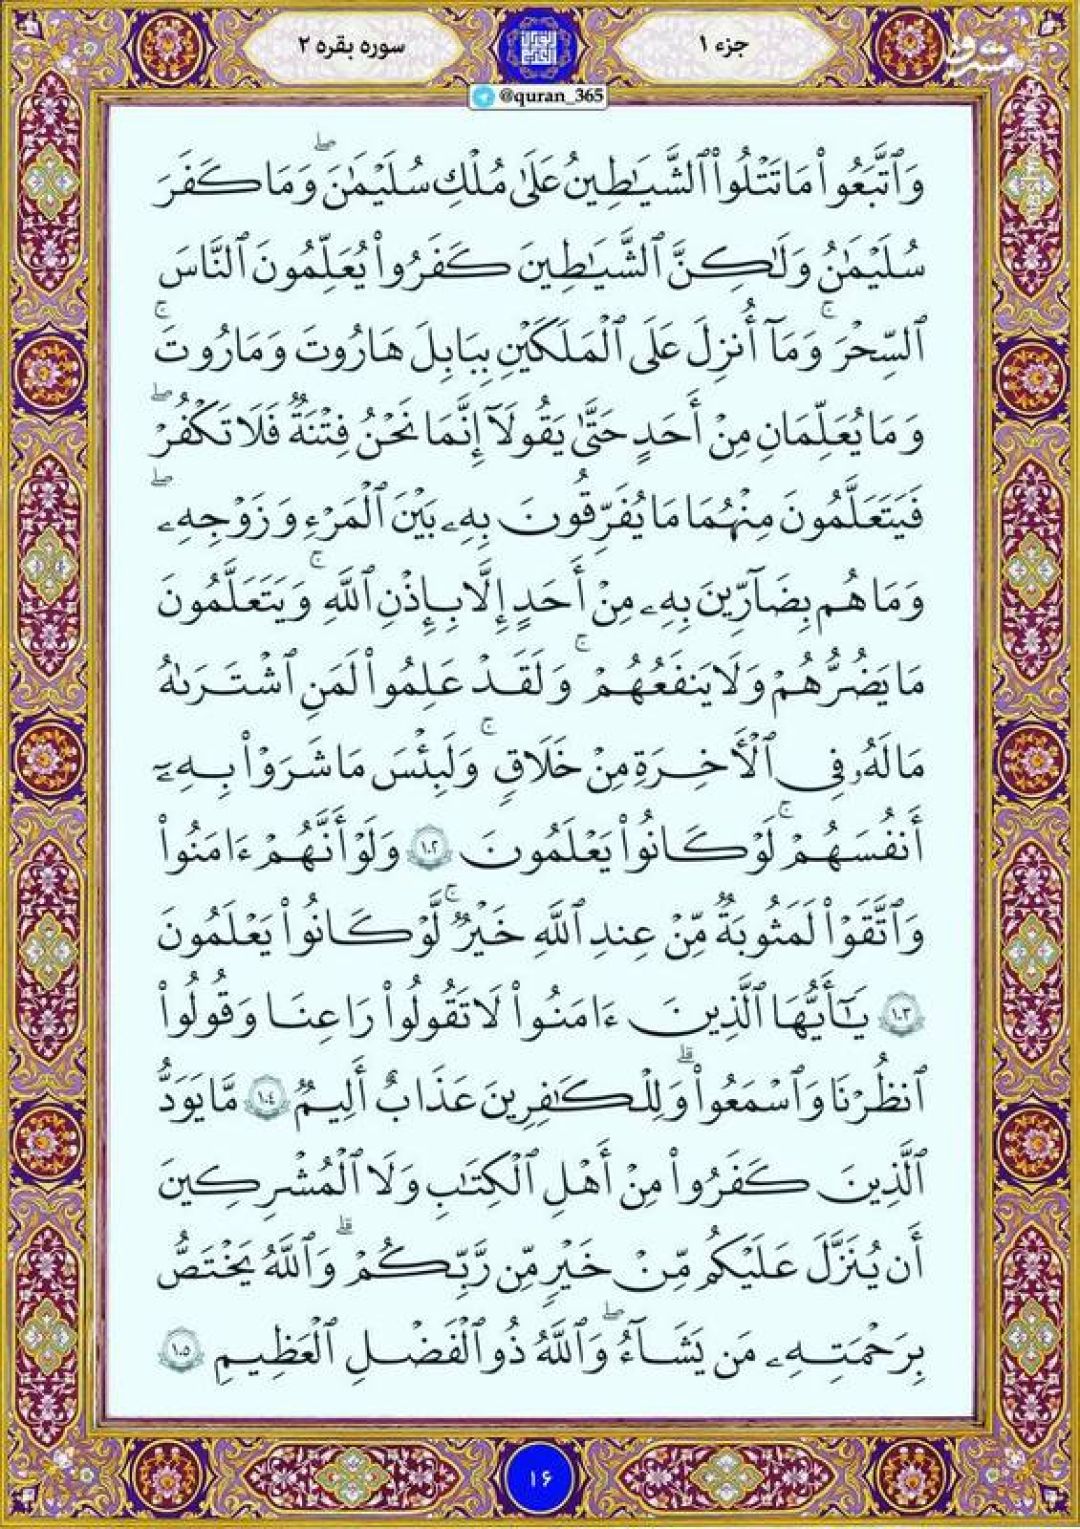 جزء ۱
سوره بقره ۲
@quran_365
وَٱتَّبَعُوا۟ مَا تَتْلُوا۟ ٱلشَّيَـٰطِينُ عَلَىٰ مُلْكِ سُلَيْمَـٰنَ ۖ وَمَا كَفَرَ
سُلَيْمَـٰنُ وَلَـٰكِنَّ ٱلشَّيَـٰطِينَ كَفَرُوا۟ يُعَلِّمُونَ ٱلنَّاسَ
ٱلسِّحْرَ ۚ وَمَآ أُنزِلَ عَلَى ٱلْمَلَكَيْنِ بِبَابِلَ هَارُوتَ وَمَارُوتَ ۚ
وَمَا يُعَلِّمَانِ مِنْ أَحَدٍ حَتَّىٰ يَقُولَآ إِنَّمَا نَحْنُ فِتْنَةٌ فَلَا تَكْفُرْ ۖ
فَيَتَعَلَّمُونَ مِنْهُمَا مَا يُفَرِّقُونَ بِهِۦ بَيْنَ ٱلْمَرْءِ وَزَوْجِهِۦ ۖ
وَمَا هُم بِضَآرِّينَ بِهِۦ مِنْ أَحَدٍ إِلَّا بِإِذْنِ ٱللَّهِ ۚ وَيَتَعَلَّمُونَ
مَا يَضُرُّهُمْ وَلَا يَنفَعُهُمْ ۚ وَلَقَدْ عَلِمُوا۟ لَمَنِ ٱشْتَرَىٰهُ
مَا لَهُۥ فِى ٱلْأَخِرَةِ مِنْ خَلَـٰقٍ ۚ وَلَبِئْسَ مَا شَرَوْا۟ بِهِۦٓ
أَنفُسَهُمْ ۚ لَوْ كَانُوا۟ يَعْلَمُونَ ١٠٢ وَلَوْ أَنَّهُمْ ءَامَنُوا۟
وَٱتَّقَوْا۟ لَمَثُوبَةٌ مِّنْ عِندِ ٱللَّهِ خَيْرٌ ۚ لَّوْ كَانُوا۟ يَعْلَمُونَ
١٠٣ يَـٰٓأَيُّهَا ٱلَّذِينَ ءَامَنُوا۟ لَا تَقُولُوا۟ رَاعِنَا وَقُولُوا۟
ٱنظُرْنَا وَٱسْمَعُوا۟ ۗ وَلِلْكَـٰفِرِينَ عَذَابٌ أَلِيمٌ ١٠٤ مَّا يَوَدُّ
ٱلَّذِينَ كَفَرُوا۟ مِنْ أَهْلِ ٱلْكِتَـٰبِ وَلَا ٱلْمُشْرِكِينَ
أَن يُنَزَّلَ عَلَيْكُم مِّنْ خَيْرٍ مِّن رَّبِّكُمْ ۗ وَٱللَّهُ يَخْتَصُّ
بِرَحْمَتِهِۦ مَن يَشَآءُ ۚ وَٱللَّهُ ذُو ٱلْفَضْلِ ٱلْعَظِيمِ ١٠٥
۱۶